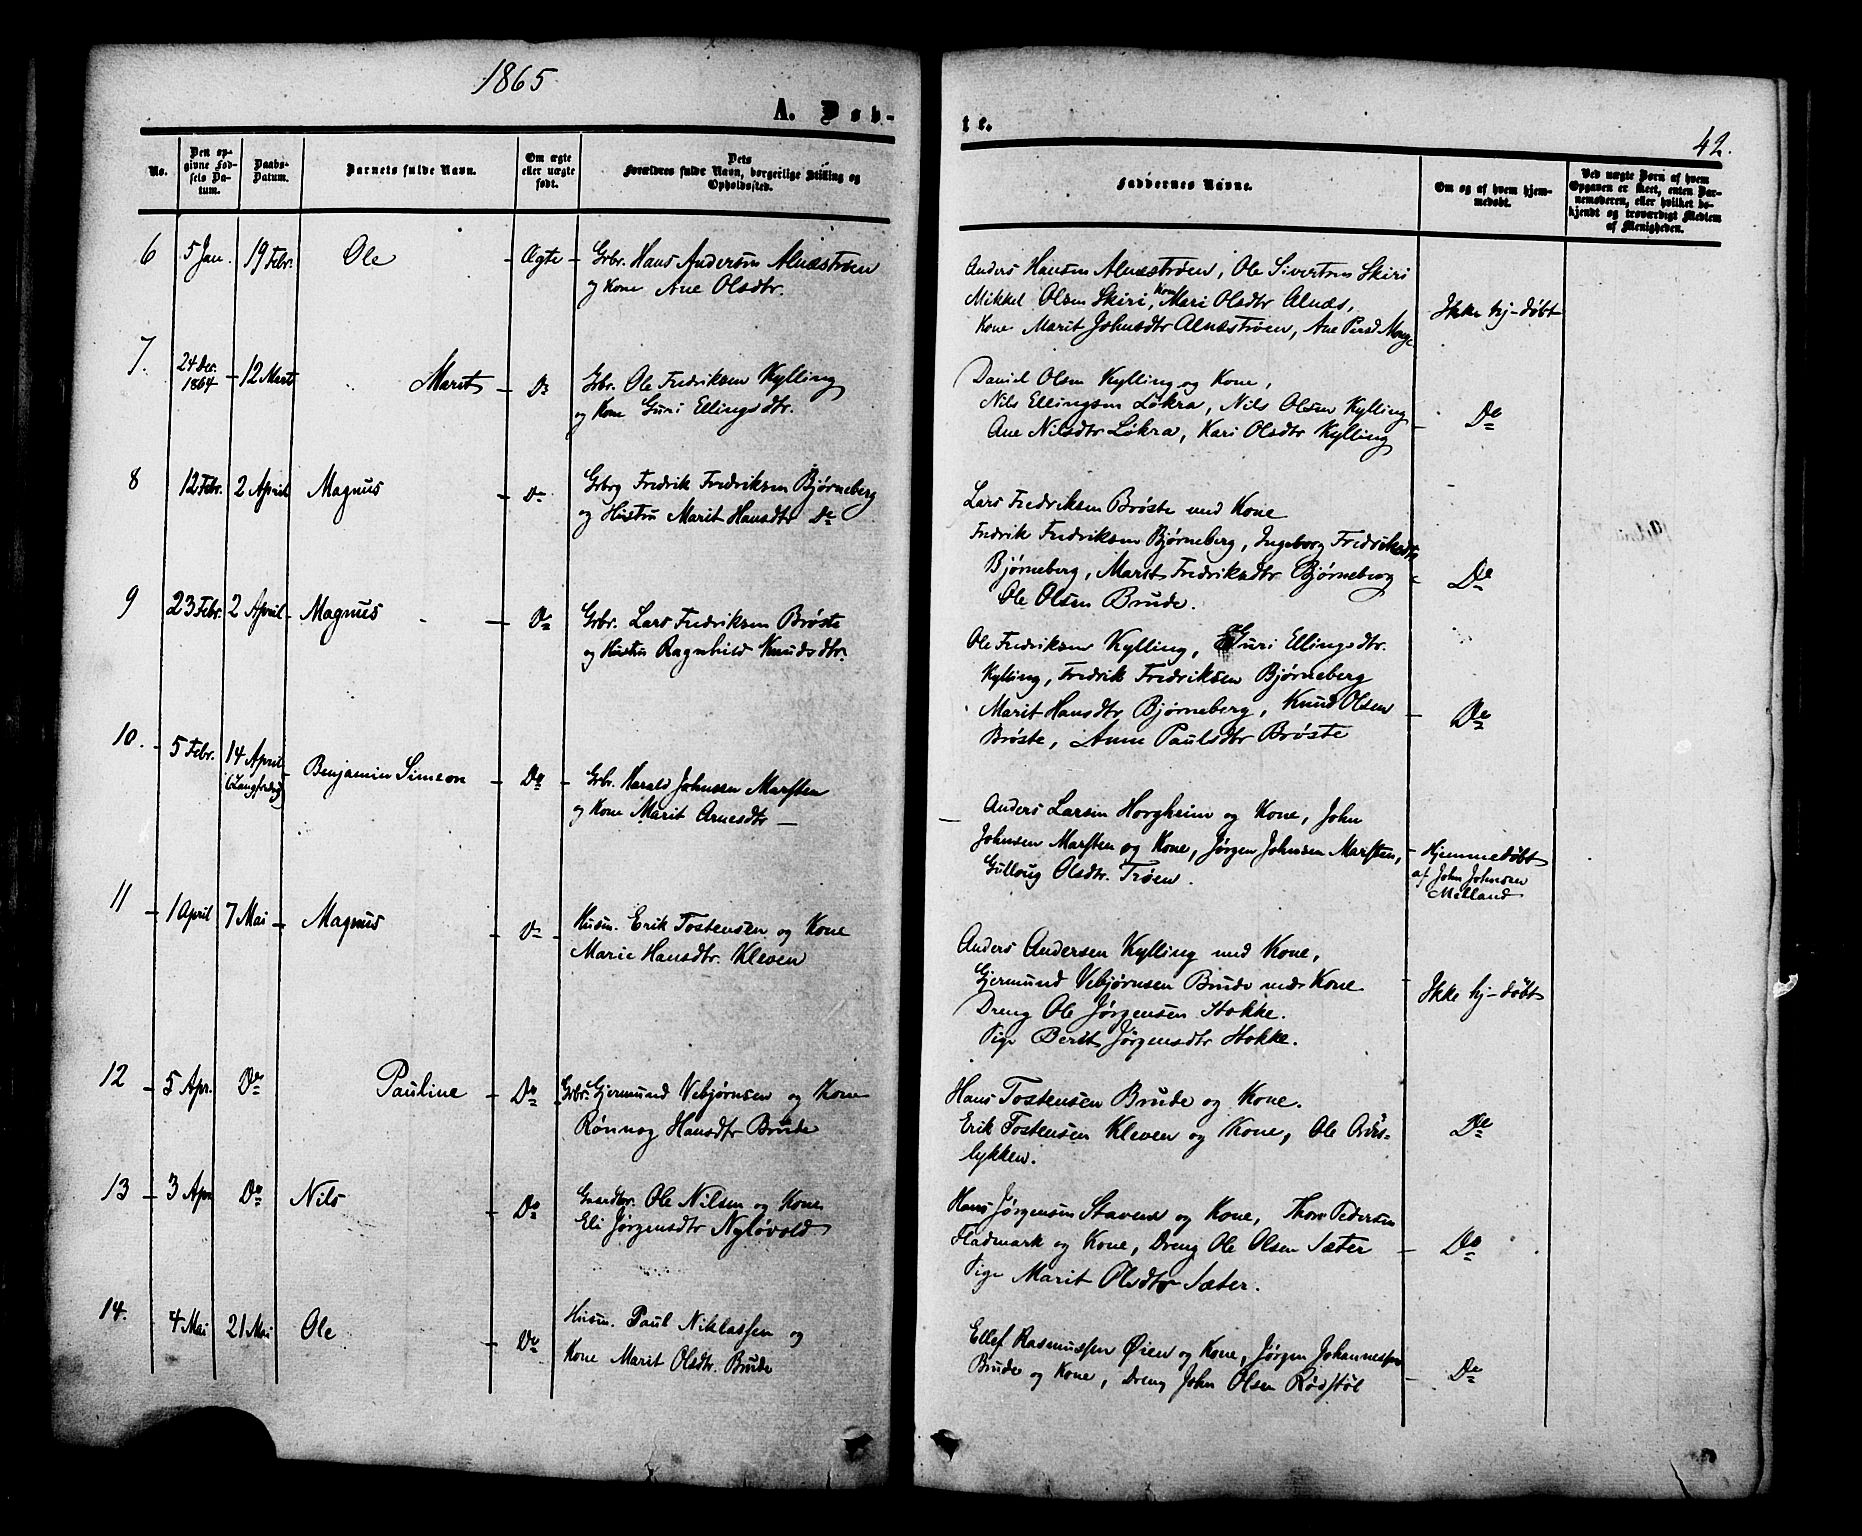 1865
A. Døb-
te.
42.
No.
Den op-
givne Fød-
sels Da-
tum.
Daabs-
Datum.
Barnets fulde Navn.
Om ægte
eller uægte
født.
Dets
Forældres fulde Navn, borgerlige Stilling og
Opholdssted.
Faddernes Navne.
Om og af hvem hjem-
medøbt.
Ved uægte Børn af hvem
Opgaven er skeet, enten Bar-
nemoderen, eller hvilket be-
kjendt og troværdigt Medlem
af Menigheden.
6 5 Jan. 19 Febr. Ole - Ægte - Grbr. Hans Andersen Alnæstrøen
og Kone Ane Olsdtr.
Anders Hansen Alnæstrøen, Ole Sivertsen Skiri
Mikkel Olsen Skiri, Kone Mari Olsdtr Alnæs,
Kone Marit Johnsdtr Alnæstrøen, Ane Persd Monge
Ikke hj-døbt
7. 24 Dec. 1864 - 12 Mart Marit - Do Grbr. Ole Fredriksen Kylling
og Kone Guri Ellingsdtr.
Daniel Olsen Kylling og Kone,
Nils Ellingsen Løkra, Nils Olsen Kylling
Ane Nilsdtr Løkra, Kari Olsdtr Kylling - Do
8 12 Febr. 2 April Magnus - Do Grbrg Fredrik Fredriksen Bjørneberg
og Hustru Marit Hansdtr Do
Lars Fredriksen Brøste med Kone
Fredrik Fredriksen Bjørneberg, Ingeborg Fredriksdtr
Bjørneberg, Marit Fredriksdtr Bjørneberg - Do
Ole Olsen Brude.
9 23 Febr. 2 April - Magnus - Do Grbr. Lars Fredriksen Brøste
og Hustru Ragnhild Knudsdtr.
Ole Fredriksen Kylling, Guri Ellingsdtr.
Kylling, Fredrik Fredriksen Bjørneberg
Marit Hansdtr Bjørneberg, Knud Olsen - Do
Brøste, Anne Paulsdtr Brøste
10. - 5 Febr. 14 April
(Langfredag) - Benjamin Simeon - Do - Grbr. Harald Johnsen Marsten
og Kone Marit Arnesdtr -
Anders Larsen Horgheim og Kone, John
Johnsen Marsten og Kone, Jørgen Johnsen Marsten, - Hjemmedøbt
Gulloug Olsdtr. Trøen. af John Johnsen
Melland
11 - 1 April 7 Mai - Magnus - Do - Husm. Erik Tostensen og Kone
Marie Hansdtr. Kleven
Anders Andersen Kylling med Kone,
Gjermund Vebjørnsen Brude med Kone - Ikke hj-døbt
Dreng Ole Jørgensen Stokke.
Pige Berit Jørgensdtr Stokke.
12 - 5 Apr. Do Pauline - Do - Grbr. Gjermund Vebjørnsen og Kone
Rønnog Hansdtr Brude
Hans Tostensen Brude og Kone.
Erik Tostensen Kleven og Kone, Ole
lykken. Do
13 - 3 Apr Do Nils - Do Gaardbr. Ole Nilsen og Kone
Eli Jørgensdtr Nyløvold
Hans Jørgensen Stavem og Kone, Thore Pedersen
Fladmark og Kone, Dreng Ole Olsen Sæter - Do
Pige Marit Olsdtr Sæter.
14. - 4 Mai 21 Mai Ole - Do Husm. Paul Niklassen og
Kone Marit Olsdtr. Brude
Ellef Rasmussen Øien og Kone, Jørgen Johannessen
Brude og Kone, Dreng John Olsen Rødstøl - Do